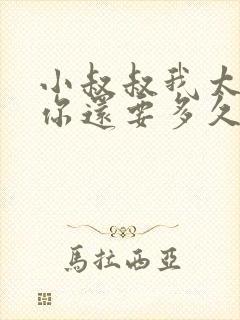 小叔叔我太
你還要多久
馬拉西亞